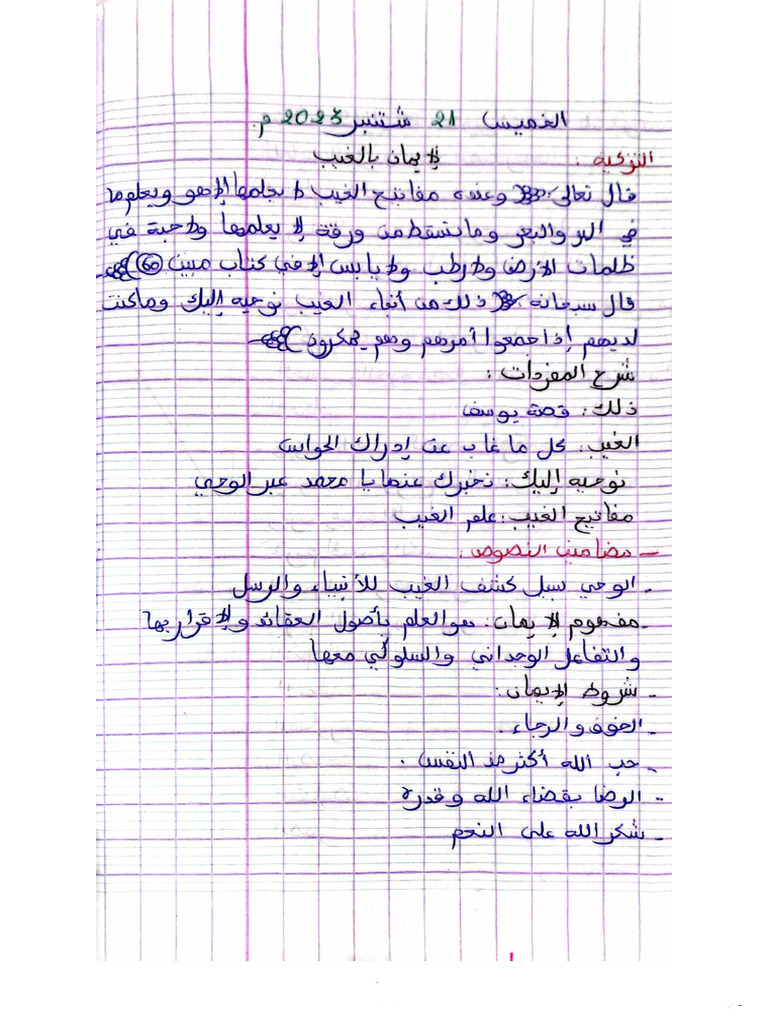 الخميس 21 شتنبر 2023 م.
التزكية : الإيمان بالغيب
قال تعالى ﴿ وعنده مفاتيح الغيب لا يعلمها إلا هو ويعلم ما
في البر والبحر وما تسقط من ورقة إلا يعلمها ولا حبة في
ظلمات الأرض ولا رطب ولا يابس إلا في كتاب مبين 60 ﴾
قال سبحانه ﴿ ذلك من أنباء الغيب نوحيه إليك وما كنت
لديهم إذ اجمعوا أمرهم وهم يمكرون ﴾
شرح المفردات :
ذلك : قصة يوسف
الغيب : كل ما غاب عن إدراك الحواس
نوحيه إليك : نخبرك عنها يا محمد عبر الوحي
مفاتيح الغيب : علم الغيب
- مضامين النصوص :
- الوحي سبل كشف الغيب للأنبياء والرسل
- مفهوم الإيمان : هو العلم بأصول العقائد والإقرار بها
والتفاعل الوجداني والسلوكي معها
- شروط الإيمان :
- الخوف والرجاء .
- حب الله أكثر من النفس .
- الرضا بقضاء الله وقدره
- شكر الله على النعم